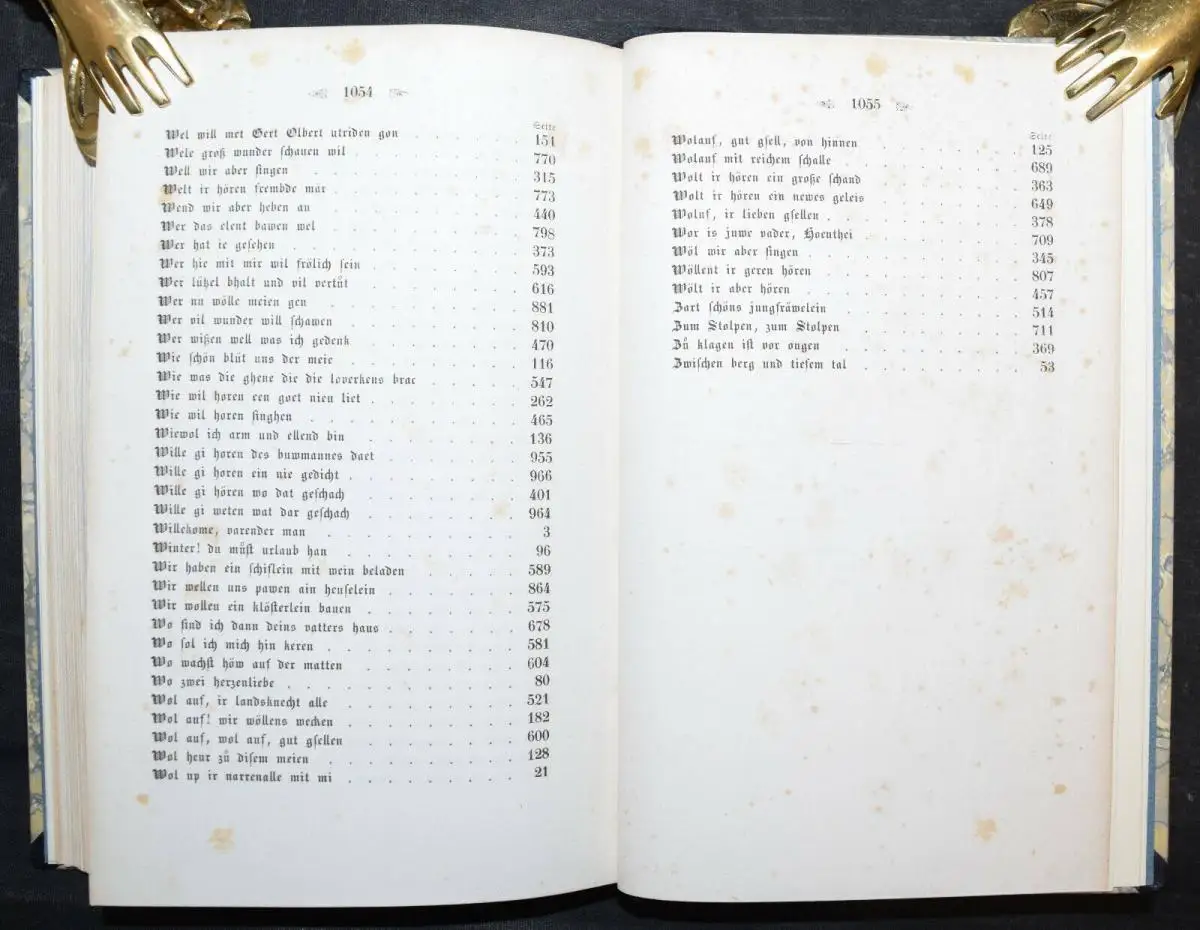 1054
Seite
Wel will met Gert Olbert utriden gon . . . . 151
Wele groß wunder schauen wil . . . . . 770
Well wir aber singen . . . . . . 315
Welt ir hören frembde mär . . . . . 773
Wend wir aber heben an . . . . . . 440
Wer das elent bawen wel . . . . . . 798
Wer hat ie gesehen . . . . . . . 373
Wer hie mit mir wil frölich sein . . . . . 593
Wer lützel bhalt und vil vertůt . . . . . 616
Wer nu wölle meien gen . . . . . . 881
Wer vil wunder will schawen . . . . . 810
Wer wißen well was ich gedenk . . . . . 470
Wie schön blüt uns der meie . . . . . 116
Wie was die ghene die die loverkens brac . . . 547
Wie wil horen een goet nieu liet . . . . . 262
Wie wil horen singhen . . . . . . 465
Wiewol ich arm und ellend bin . . . . . 136
Wille gi horen des buwmannes daet . . . . 955
Wille gi horen ein nie gedicht . . . . . 966
Wille gi hören wo dat geschach . . . . . 401
Wille gi weten wat dar geschach . . . . . 964
Willekome, varender man . . . . . . 3
Winter! du můst urlaub han . . . . . 96
Wir haben ein schiflein mit wein beladen . . . 589
Wir wellen uns pawen ain heuselein . . . . 864
Wir wollen ein klösterlein bauen . . . . . 575
Wo find ich dann deins vatters haus . . . . 678
Wo sol ich mich hin keren . . . . . . 581
Wo wachst höw auf der matten . . . . . 604
Wo zwei herzenliebe . . . . . . . 80
Wol auf, ir landsknecht alle . . . . . 521
Wol auf! wir wöllens wecken . . . . . 182
Wol auf, wol auf, gut gsellen . . . . . 600
Wol heur zů disem meien . . . . . . 128
Wol up ir narrenalle mit mi . . . . . 21
1055
Seite
Wolauf, gut gsell, von hinnen . . . . . 125
Wolauf mit reichem schalle . . . . . 689
Wolt ir hören ein große schand . . . . . 363
Wolt ir hören ein newes geleis . . . . . 649
Woluf, ir lieben gsellen . . . . . . 378
Wor is juwe vader, Hoenthei . . . . . 709
Wöl wir aber singen . . . . . . 345
Wöllent ir geren hören . . . . . . 807
Wölt ir aber hören . . . . . . . 457
Zart schöns jungfräwelein . . . . . . 514
Zum Stolpen, zum Stolpen . . . . . . 711
Zů klagen ist vor ougen . . . . . . 369
Zwischen berg und tiefem tal . . . . . 53